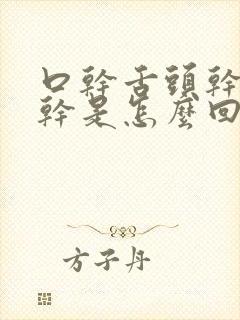 口幹舌頭幹
幹是怎麼回
方子丹